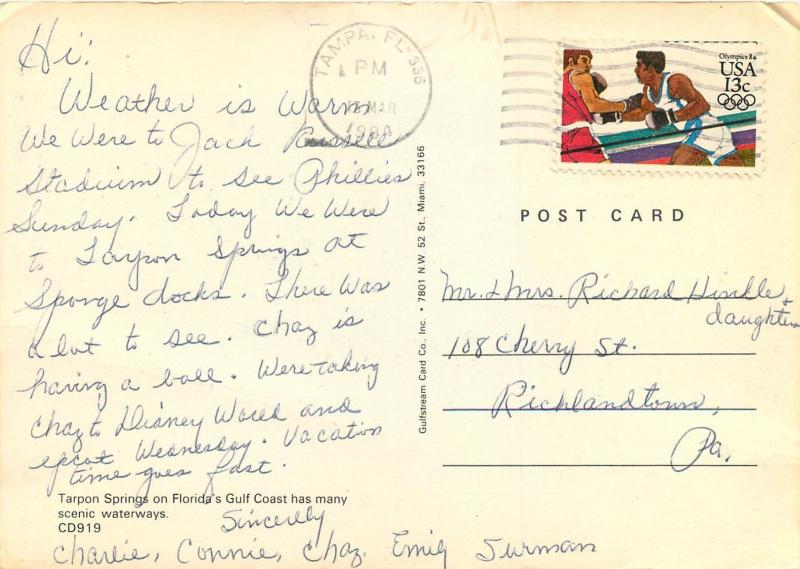 Hi:
Weather is Warm
We Were to Jack Russell
Stadium to see Phillies
Sunday. Today We Were
to Tarpon Springs at
Sponge docks. There Was
a lot to see. Chaz is
having a ball. Were taking
Chaz to Disney World and
epcot Wednesday. Vacation
time goes fast.
Tarpon Springs on Florida's Gulf Coast has many
scenic waterways.
CD919
Sincerly
Charlie, Connie, Chaz, Emily Surman
Gulfstream Card Co., Inc. • 7801 N.W. 52 St., Miami, 33166
TAMPA, FL 336
PM
MAR
Olympics 84
USA
13c
POST CARD
Mr. & Mrs. Richard
daughter
108 Cherry St.
Richlandtown,
Pa.